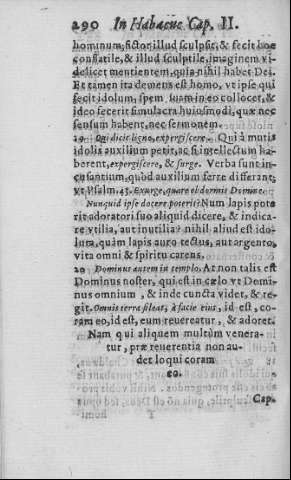 290 In Habacuc Cap. II.
hominum, fictor illud sculpsit, & fecit hoc
conflatile, & illud sculptile, imaginem vi-
delicet mentientem, quia nihil habet Dei.
Et tamen ita demens est homo, vt ipse qui
fecit idolum, spem suam in eo collocet, &
ideo fecerit simulacra huiusmodi, quæ nec
sensum habent, nec sermonem.
19 Qui dicit ligno, expergiscere. Qui à mutis
idolis auxilium petit, ac si intellectum ha-
berent, expergiscere, & surge. Verba sunt in-
cusantium, quòd auxilium ferre differant;
vt Psalm. 43. Exurge, quare obdormis Domine
Nunquid ipse docere poterit? Num lapis pote-
rit adoratori suo aliquid dicere, & indica-
re vtilia, aut inutilia? nihil aliud est ido-
lum, quàm lapis auro tectus, aut argento,
vita omni & spiritu carens.
20 Dominus autem in templo. At non talis est
Dominus noster, qui est in cælo vt Domi-
nus omnium, & inde cuncta videt, & re-
git. Omnis terra sileat, à facie eius, id est, co-
ram eo, id est, eum reuereatur, & adoret.
Nam qui aliquem multùm venera-
tur, præ reuerentia non au-
det loqui coram
eo.
Cap.